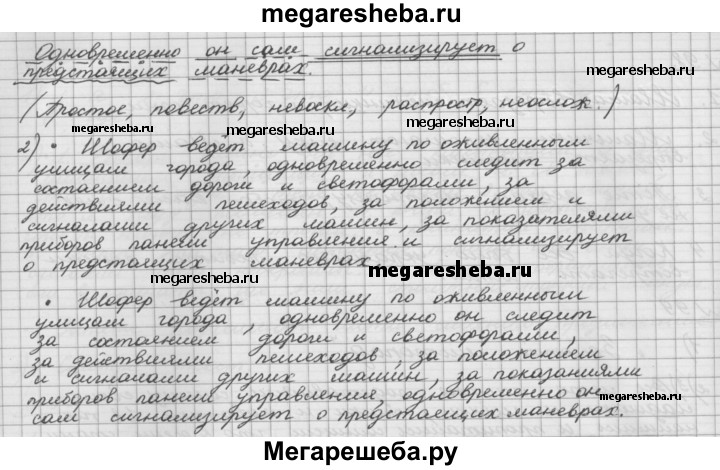 megaresheba.ru
Одновременно он сам сигнализирует о
предстаящих маневрах.
megaresheba.ru
(Простое, повеств, невоскл, распростр, неослож.)
megaresheba.ru megaresheba.ru
2) • Шофер ведёт машину по оживленным
улицам города, одновременно следит за
состоянием дороги и светофорами, за
действиями пешеходов, за положением и
сигналами других машин, за показателями
приборов панели управления и сигнализирует
о предстаящих маневрах.
megaresheba.ru megaresheba.ru
• Шофер ведёт машину по оживленным
улицам города, одновременно он следит
за состоянием дороги и светофорами,
за действиями пешеходов, за положением
и сигналами других машин, за показаниями
приборов панели управления, одновременно он
сам сигнализирует о предстаящих маневрах.
megaresheba.ru
Мегарешеба.ру